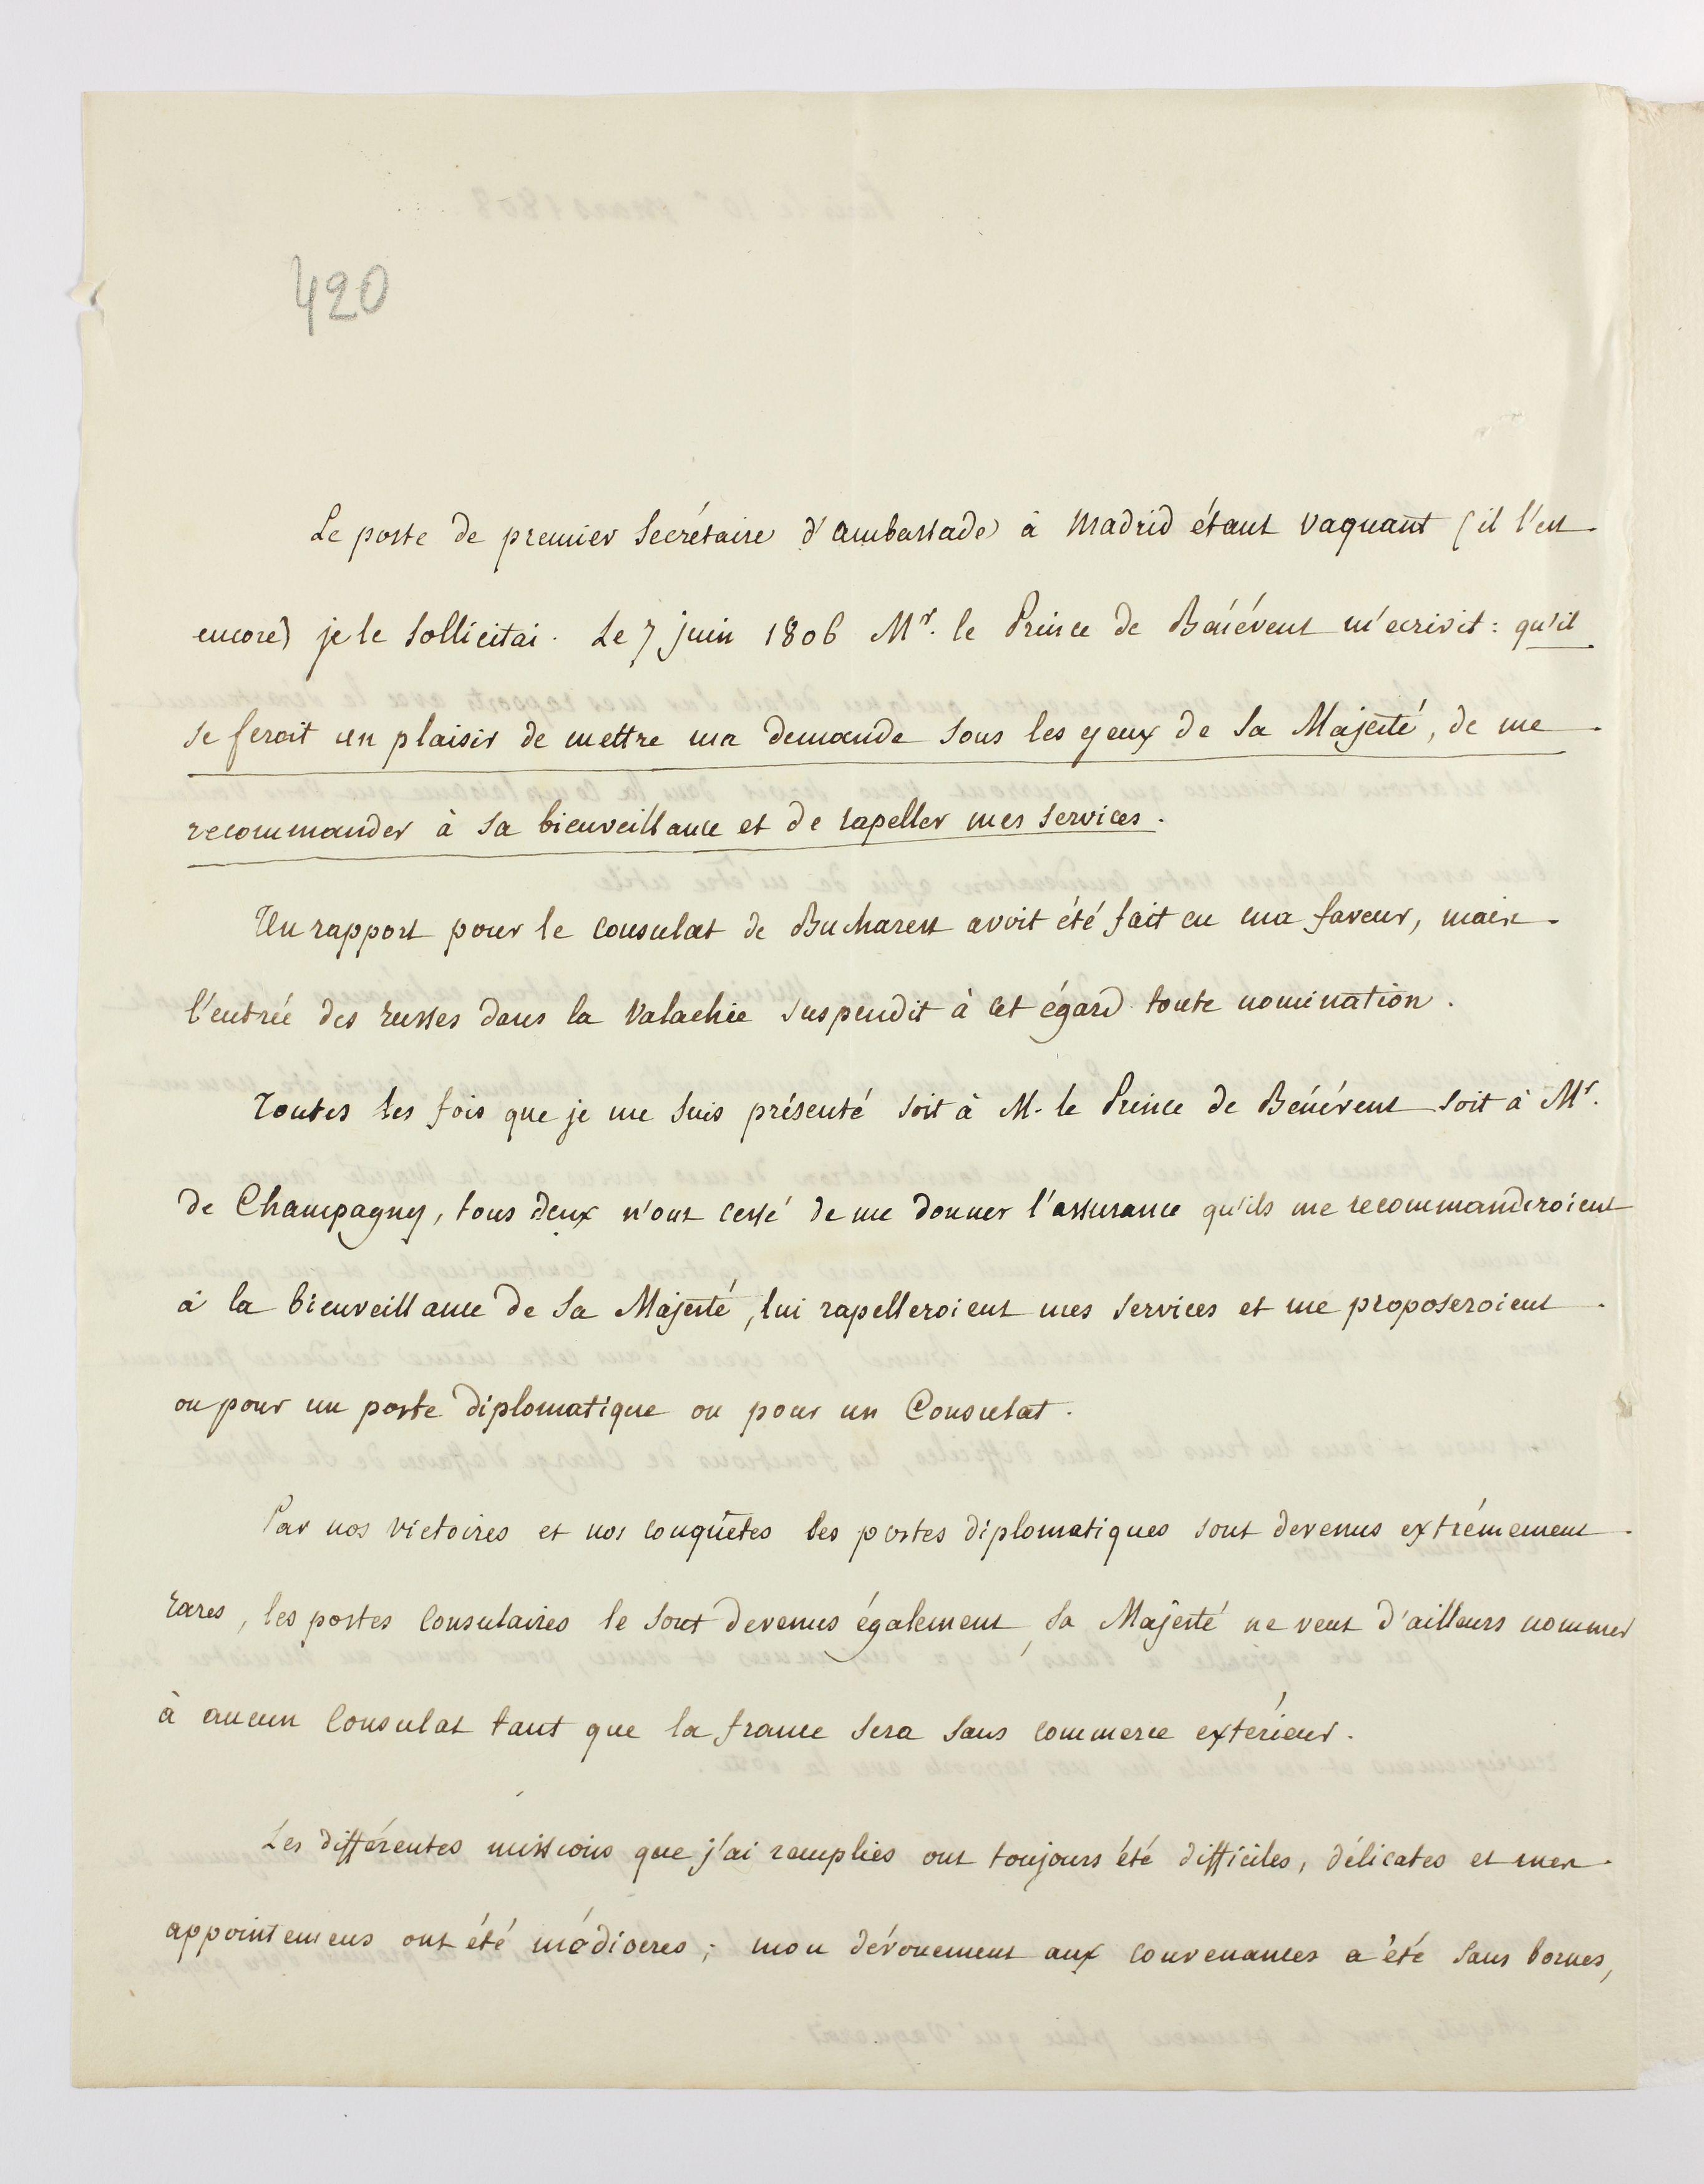 420
Le poste de premier Secrétaire d'ambassade à Madrid étant vaquant (il l'est
encore) je le sollicitai. Le 7 juin 1806 Mr. le Prince de Bénévent m'ecrivit : qu'il
se feroit un plaisir de mettre ma demande sous les yeux de Sa Majesté, de me
recommander à sa bienveillance et de rapeller mes services.
Un rapport pour le consulat de Bucharest avoit été fait en ma faveur, mais
l'entrée des russes dans la Valachie suspendit à cet égard toute nomination.
Toutes les fois que je me suis présenté soit à M. le Prince de Bénévent soit à Mr.
de Champagny, tous deux n'ont cessé de me donner l'assurance qu'ils me recommanderoient
à la bienveillance de Sa Majesté, lui rapelleroient mes services et me proposeroient
ou pour un poste diplomatique ou pour un Consulat.
Par nos victoires et nos conquêtes les postes diplomatiques sont devenus extrémement
rares, les postes Consulaires le sont devenus également, Sa Majesté ne veut d'ailleurs nommer
à aucun Consulat tant que la france sera sans commerce extérieur.
Les différentes missions que j'ai remplies ont toujours été difficiles, délicates et mes
appointemens ont été médiocres ; mon dévouement aux convenances a été sans bornes,